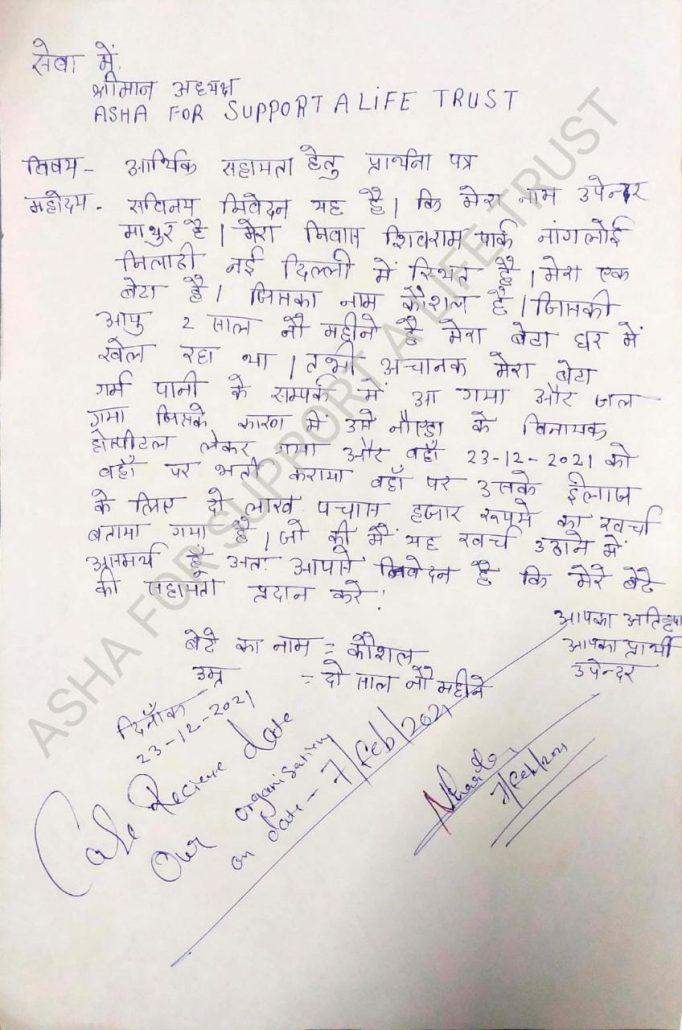 सेवा में,
श्रीमान अध्यक्ष
ASHA FOR SUPPORT A LIFE TRUST
विषय - आर्थिक सहायता हेतु प्रार्थना पत्र
महोदय - सविनय निवेदन यह है। कि मेरा नाम उपेन्दर
माथुर है। मेरा निवास शिवराम पार्क नांगलोई
नई दिल्ली में स्थित है। मेरा एक
बेटा है। जिसका नाम कौशल है। जिसकी
आयु 2 साल नौ महीने है मेरा बेटा घर में
खेल रहा था। तभी अचानक मेरा बेटा
गर्म पानी के सम्पर्क में आ गया और जल
गया जिसके कारण में उसे नौएडा के विनायक
होस्पीटल लेकर गया और वहाँ 23-12-2021 को
वहाँ पर भर्ती कराया वहाँ पर उसके ईलाज
के लिए दो लाख पचास हजार रूपये का खर्चा
बताया गया है। जो की मैं यह खर्चा उठाने में
आसमर्थ है अतः आपसे निवेदन है कि मेरे बेटे
की सहायता प्रदान करे।
आपका
आपका प्रार्थी
उपेन्दर
बेटे का नाम = कौशल
उम्र = दो साल नौ महीने
दिनाँक
23-12-2021
Case Recieve date
Our organisation
on date - 7/Feb/2021
7/Feb/2021
ASHA FOR SUPPORT A LIFE TRUST